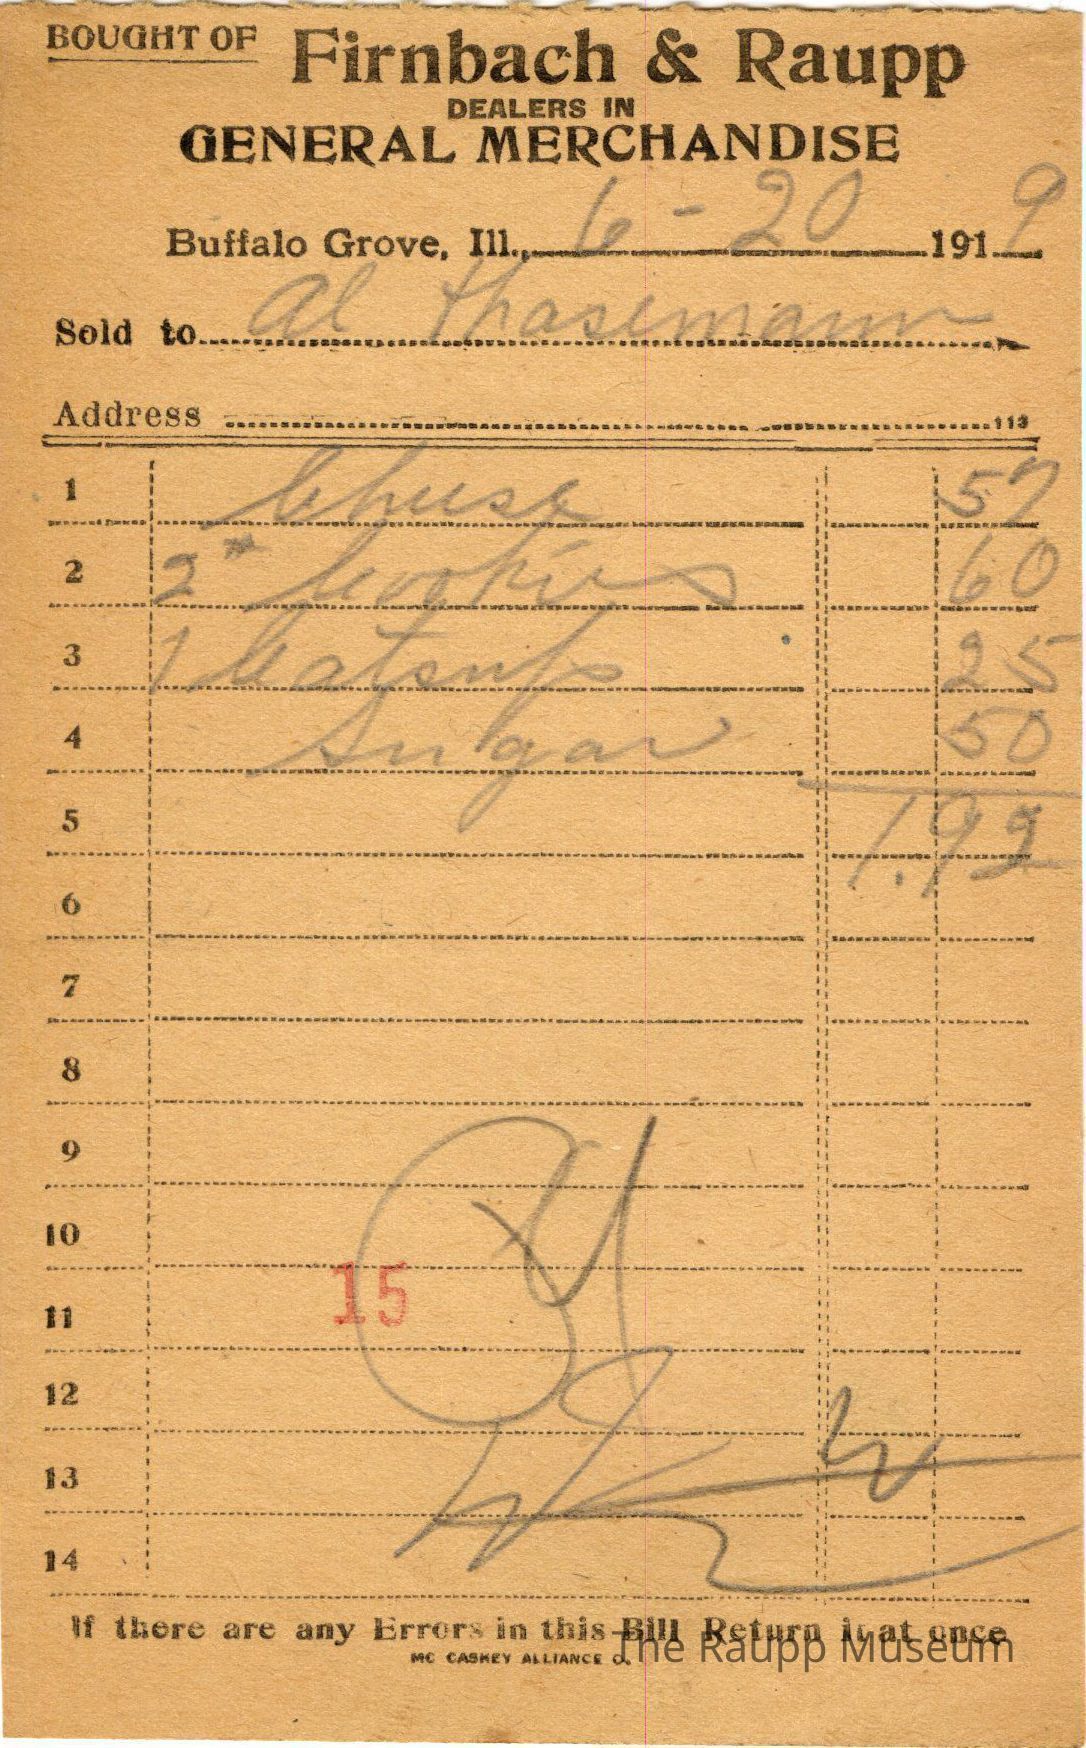 BOUGHT OF Firnbach & Raupp
DEALERS IN
GENERAL MERCHANDISE
Buffalo Grove, Ill., 6-20 1919
Sold to Al Thasemann
Address 113
1 Cheese 57
2 2# Cookies 60
3 1 Catsup 25
4 Sugar 50
5 1.92
6
7
8
9
10
15
11
12
13
14
If there are any Errors in this Bill Return it at once
MC CASKEY ALLIANCE O.
The Raupp Museum